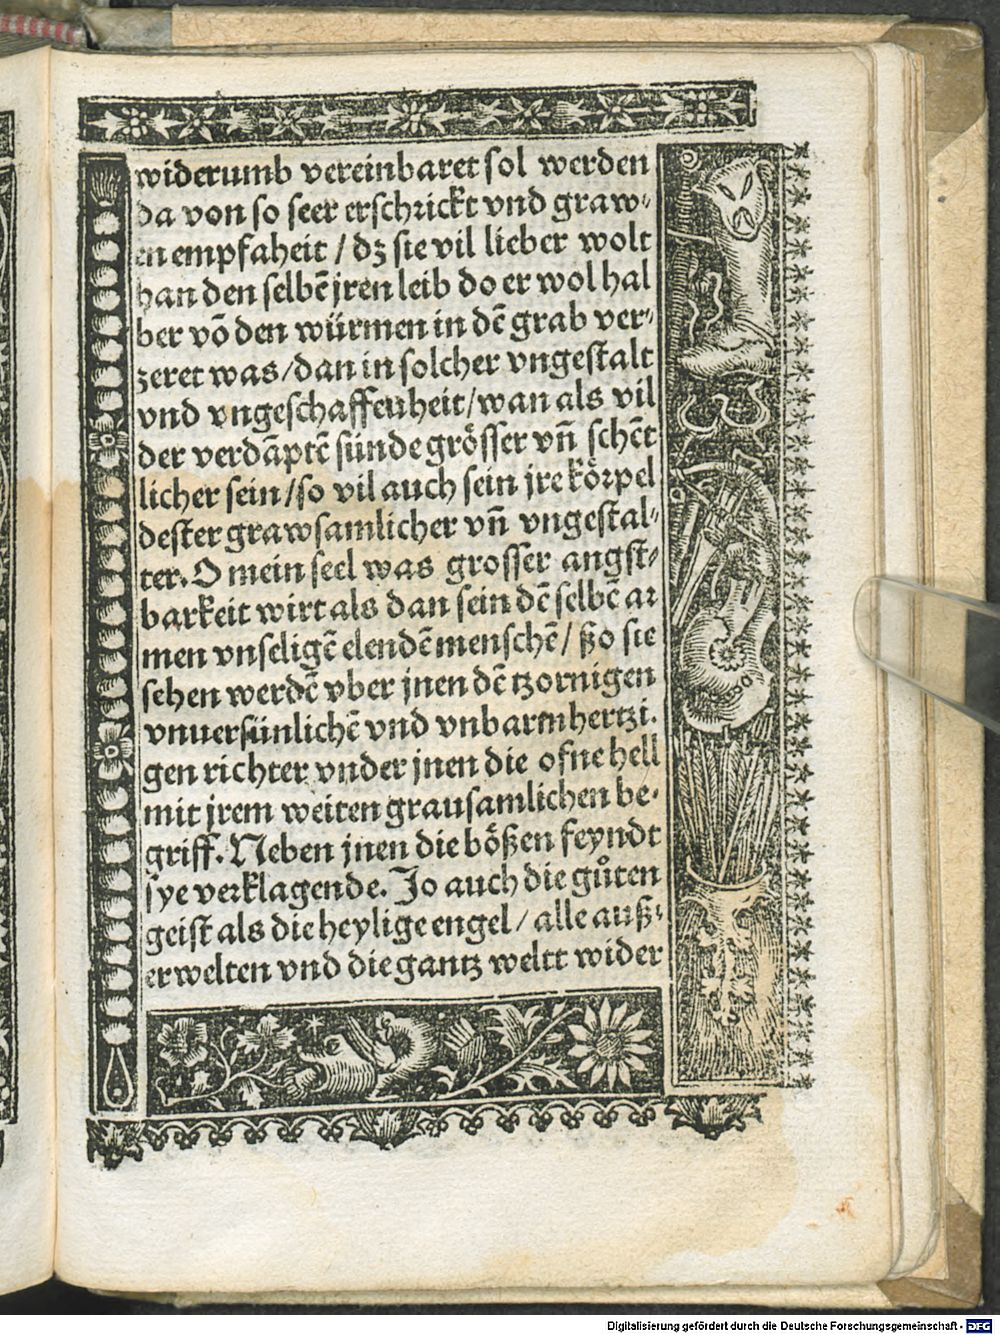 widerumb vereinbaret sol werden
da von so seer erschrickt vnd graw⸗
en empfaheit / dz sie vil lieber wolt
han den selbē jren leib do er wol hal
ber vō den würmen in dē grab ver⸗
zeret was / dan in solcher vngestalt
vnd vngeschaffenheit / wan als vil
der verdāptē sünde grösser vn̄ schēt
licher sein / so vil auch sein jre körpel
dester grawsamlicher vn̄ vngestal⸗
ter. O mein seel was grosser angst⸗
barkeit wirt als dan sein dē selbē ar
men vnseligē elendē menschē / ßo sie
sehen werdē vber jnen dē tzornigen
vnuersünlichē vnd vnbarmhertzi.
gen richter vnder jnen die ofne hell
mit jrem weiten grausamlichen be⸗
griff. Neben jnen die bößen feyndt
sye verklagende. Jo auch die gůten
geist als die heylige engel / alle auß⸗
erwelten vnd die gantz weltt wider
Digitalisierung gefördert durch die Deutsche Forschungsgemeinschaft - DFG